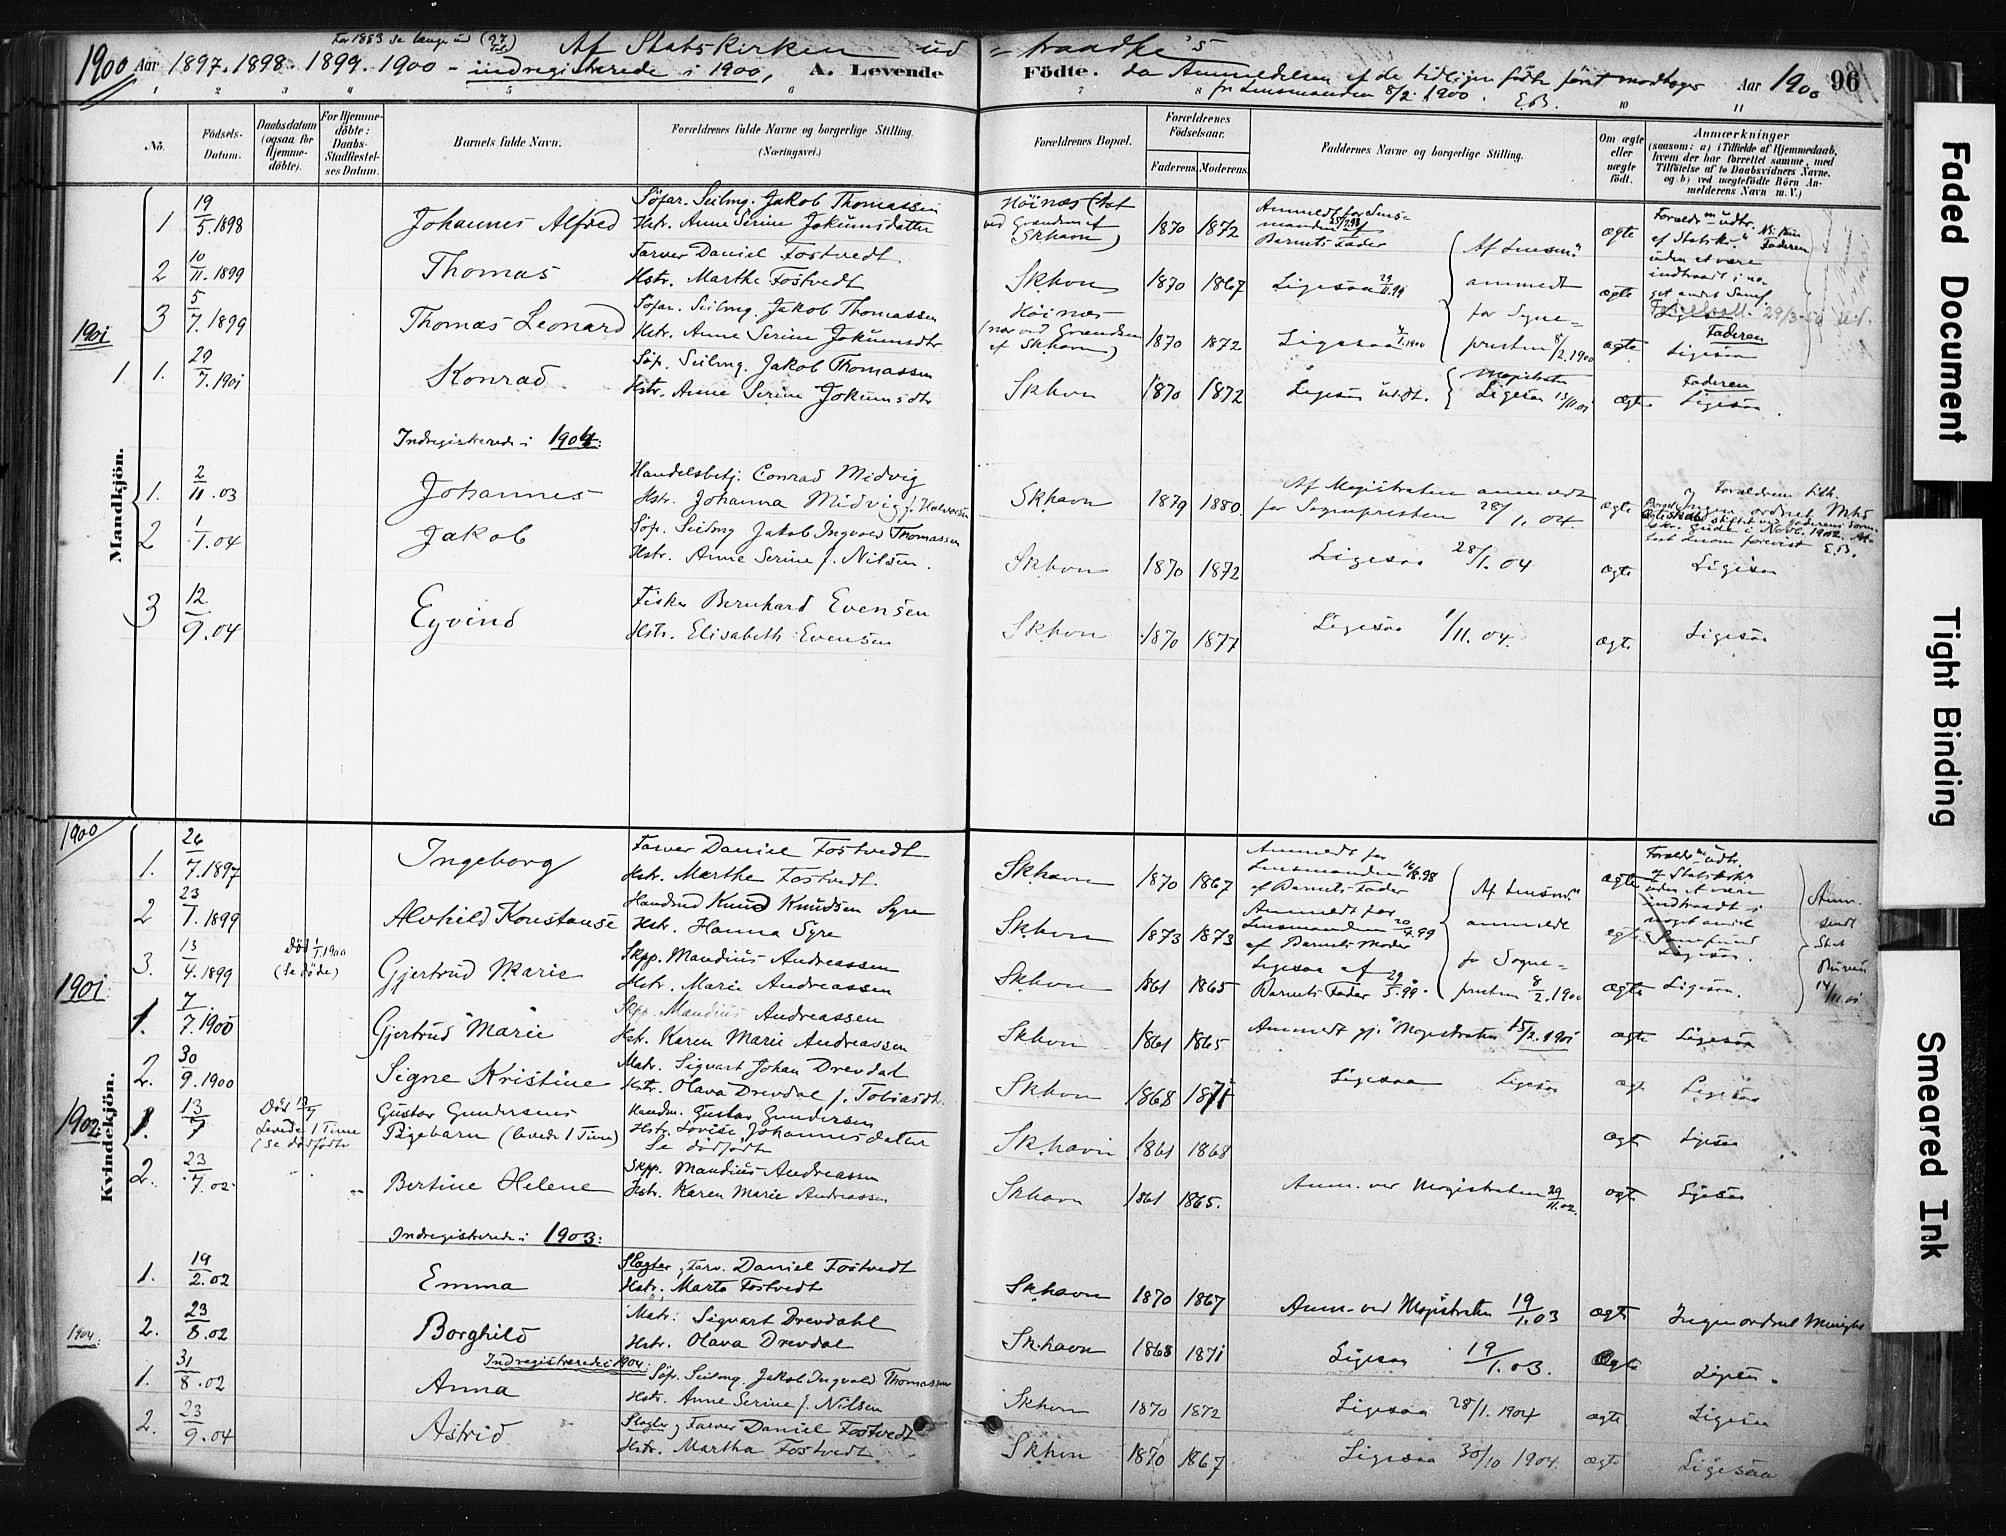 For 1883 se længe ud (97 Fol.)
1900 Aar 1897. 1898. 1899. 1900 - indregistrerede i 1900,
Af Statskirken ud = traadte's
A. Levende Födte.
da Anmeldelsen af de tidligere födte först modtoges
fra Lensmanden 8/2 1900. E.B.
Aar 1900 96
1 2 3 4 5 6 7 8 10 11
No.
Födsels-Datum.
Daabsdatum (ogsaa for Hjemme-döbte).
For Hjemme-döbte: Daabs-Stadfæstel-ses Datum.
Barnets fulde Navn.
Forældrenes fulde Navne og borgerlige Stilling.
(Næringsvei.)
Forældrenes Bopæl.
Forældrenes Födselsaar.
Faderens. Moderens.
Faddernes Navne og borgerlige Stilling.
Om ægte eller uægte födt.
Anmærkninger
(saasom: a) i Tilfælde af Hjemmedaab, hvem der har forrettet samme, med Tilföielse af to Daabsvidners Navne, og b) ved uægtefödte Börn Anmelderens Navn m. V.)
Mandkjön.
1 19/5 1898 Johannes Alfred
Söfar. Seilmg. Jakob Thomassen
Hstr. Anne Serine Jokumsdatter
Höinæs (tæt ved Grændsen af Skhavn) 1870 1872
Anmeldt for Lens-manden af Barnets Fader
ægte
Foræld. udtr. af Statsk. uden at være indtraadt i noget andet Samf.
Faderen
2 10/11 1899 Thomas
Farver Daniel Fostvedt
Hstr. Marthe Fostvedt
Skhvn 1870 1867 Ligesaa 29/11.99 ægte
Af Lensm. anmeldt for Sogne=presten 8/2.1900
3 5/7. 1899 Thomas Leonard
Söfar. Seilmg. Jakob Thomassen
Hstr. Anne Serine Jokumsdtr
Höinæs (nær ved Grændsen af Skhavn) 1870 1872 Ligesaa 1900 ægte Faderen Ligesaa
29/3-50
1901
1 1. 29/7. 1901 Konrad
Söf. Seilmg. Jakob Thomassen
Hstr. Anne Serine Jokumsdtr
Skhvn 1870 1872 Ligesaa Magistraten Ligesaa 13/11.01 ægte Faderen Ligesaa.
Indregistrerede i 1904:
1. 2/11.03 Johannes
Handelsbetj. Conrad Midvig
Hstr. Johanna Midvig f. Halvorsen
Skhavn 1879 1880.
Af Magistraten anmeldt for Sognepresten 28/1.04
ægte
2 1/1.04 Jakob
Söf. Seilmg Jakob Ingvald Thomassen
Hstr. Anne Serine f. Nilsen.
Skhvn 1870 1872 Ligesaa 28/1.04 ægte Ligesaa
3 12/9.04 Eyvind
Fisker Bernhard Evensen
Hstr. Elisabeth Evensen
Skhvn 1870 1877 Ligesaa 1/11.04. ægte Ligesaa
Kvindekjön.
1900
1. 26/7.1897 Ingeborg
Farver Daniel Fostvedt
Hstr. Marthe Fostvedt.
Skhavn 1870 1867
Anmeldt for Lensmanden af Barnets Fader
ægte
Foræld. udtr. af Statsk. uden at være indtraadt i noget andet Samfund
2 23/1. 1899 Alvhild Konstanse
Handm Knud Knudsen Syre
Hstr. Hanna Syre
Skhvn 1873 1873
Anmeldt for Lensmanden 20/4.99 af Barnets Moder
ægte Ligesaa.
Af Lensm. anmeldt for Sogne=presten 8/2.1900
Anm. sendt Stat. Bureau 14/11.01
3. 13/4. 1899 Död 1/1 1900 (Se döde) Gjertrud Marie
Skpp. Mandius Andreassen
Hstr. Marie Andreassen
Skhvn 1861 1865
Ligesaa af Barnets Fader 29/5.99.
ægte Ligesaa.
1901
1. 7/7. 1900 Gjertrud Marie
Skpp. Mandius Andreassen
Hst. Karen Marie Andreassen
Skhvn 1861 1865 Anmeldt gj. Magistraten 15/2.1901 ægte Ligesaa
2. 30/9.1900 Signe Kristine
Matr. Sigvart Johan Drevdal
Hstr. Olava Drevdal f. Tobiasdt.
Skhvn 1868 1871 Ligesaa Ligesaa ægt Ligesaa
1902:
1. 13/7 Död 13/7 Levede 1 Time (Se dödfödte
Gustav Gundersens Pigebarn (levede 1 Time)
Handm. Gustav Gundersen
Hstr. Lovise Johannesdatter
Se dödfödte
Sk.havn 1861 1868 ægte Ligesaa
2. 23/7.02 Bertine Helene
Skpp. Mandius Andreassen
Hstr. Karen Marie Andreassen
Skhavn 1861 1865. Anm. ved Magistraten 29/11.02. ægte Ligesaa
Indregistrerede i 1903:
1. 19/2.02 Emma
Slagter, Farv. Daniel Fostvedt
Hstr. Marta Fostvedt
Skhavn 1870 1867 Anm. ved Magistraten 19/1.03 ægte Ingen ordnet Menighe
2. 23/8.02 Borghild
Matr. Sigvart Drevdahl
Hstr. Olava Drevdal
Skhavn 1868 1871 Ligesaa 19/1.03. ægte Ligesaa
1904:
Indregistrerede i 1904:
1. 31/8.02 Anna
Söf. Seilmg. Jakob Ingvald Thomassen
Hstr. Anne Serine f. Nilsen
Skhvn 1870 1872 Ligesaa 28/1.1904 ægte Ligesaa
2. 23/9.04 Astrid
Slagter, Farver Daniel Fostvedt
Hstr. Martha Fostvedt.
Skhvn 1870 1867 Ligesaa 30/10 1904. ægte Ligesaa
Faded Document
Tight Binding
Smeared Ink